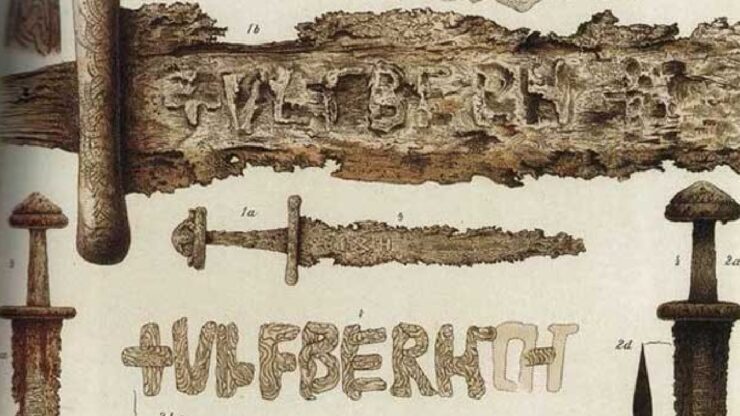 1b
+VLFBERH
1a
+VLFBERH
2a
2d